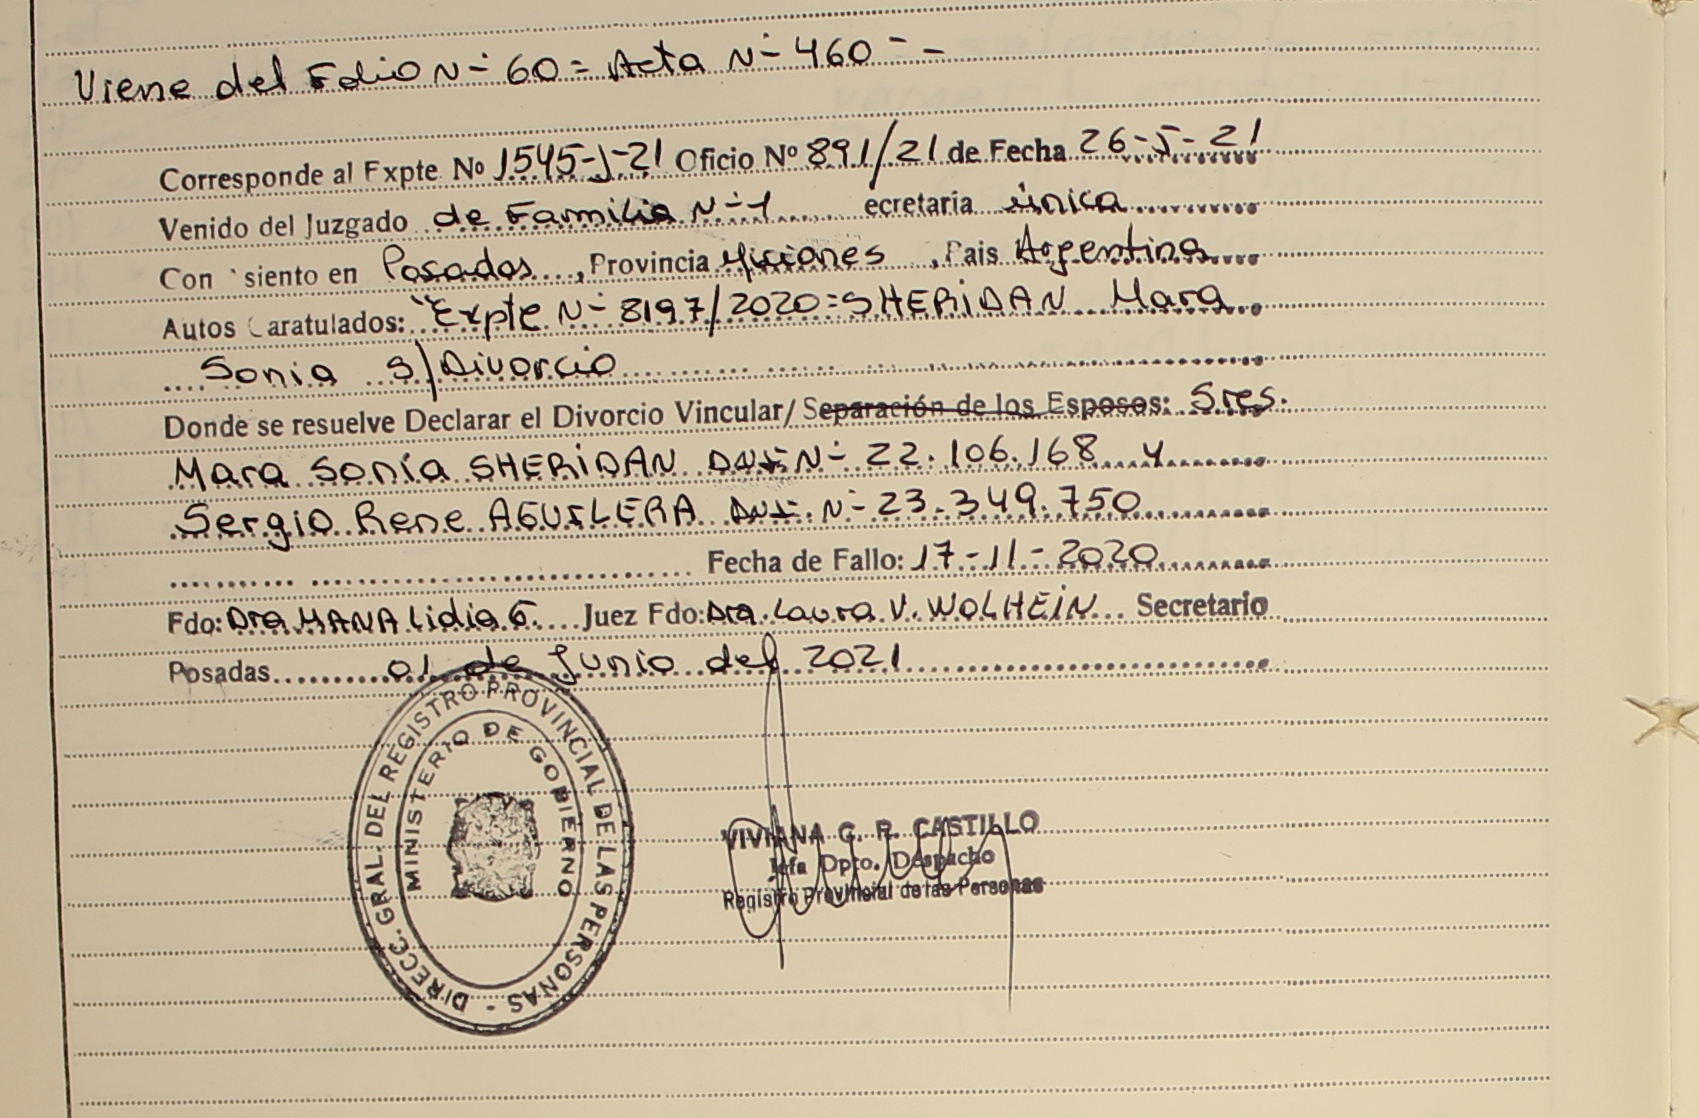 Viene del Folio N- 60 = Acta N- 460 - -
Corresponde al Expte No 1545-J-21 Oficio Nº 891/21 de Fecha 26-5-21
Venido del Juzgado de Familia N-1 ecretaría única
Con siento en Posadas, Provincia Misiones, Pais Argentina
Autos Caratulados: "Expte N- 8197/2020 = SHERIDAN Mara
Sonia S/Divorcio
Donde se resuelve Declarar el Divorcio Vincular/ Separación de los Esposos: Sres.
Mara Sonia SHERIDAN DNI N- 22.106.168 y
Sergio Rene AGUILERA DNI. N- 23.349.750
Fecha de Fallo: 17-11-2020
Fdo: Dra MANA Lidia G. Juez Fdo: Dra. Laura V. WOLHEIN Secretario
Posadas 01 de Junio del 2021
DIRECC. GRAL. DEL REGISTRO PROVINCIAL DE LAS PERSONAS -
MINISTERIO DE GOBIERNO
VIVIANA G. R. CASTILLO
Jefa Dpto. Despacho
Registro Provincial de las Personas